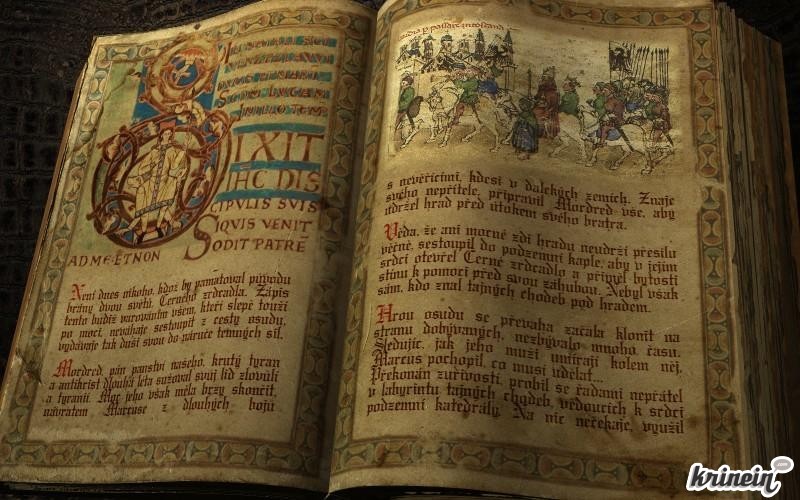 IXIT
IHC DIS
CIPULIS SVIS
SIQVIS VENIT
AD ME ET NON
SODIT PATRE
Není dnes nikoho, kdož by pamatoval původu
brány dvou světů. Černého zrdcadla. Zápis
tento budiž varováním všem, kteří slepě touží
po moci, neváhaje sestoupit z cesty osudu,
vydávaje tak duši svou do náruče temných sil.
Mordred pán panství našeho, krutý tyran
a antikrist dlouhá léta sužoval svůj lid zlovůlí
a tyranií. Moc jeho však měla brzy skončit,
návratem Marcuse z dlouhých bojů
s nevěřícími, kdesi v dalekých zemích. Znaje
svého nepřítele, připravil Mordred vše, aby
udržel hrad před útokem svého bratra.
Věda, že ani mocné zdi hradu neudrží přesilu
věčně, sestoupil do podzemní kaple, aby v jejím
srdci otevřel Černé zrdcadlo a přivel bytosti
stínu k pomoci před svou záhubou. Nebyl však
sám, kdo znal tajných chodeb pod hradem.
Hrou osudu se převaha začala klonit na
stranu dobývaných, nezbývalo mnoho času.
Sledujíc, jak jeho muži umírají kolem něj,
Marcus pochopil, co musí udělat...
Překonán zuřivostí, probil se řadami nepřátel
v labyrintu tajných chodeb, vědoucích k srdci
podzemní katedrály. Na nic nečekaje, využil
krinein